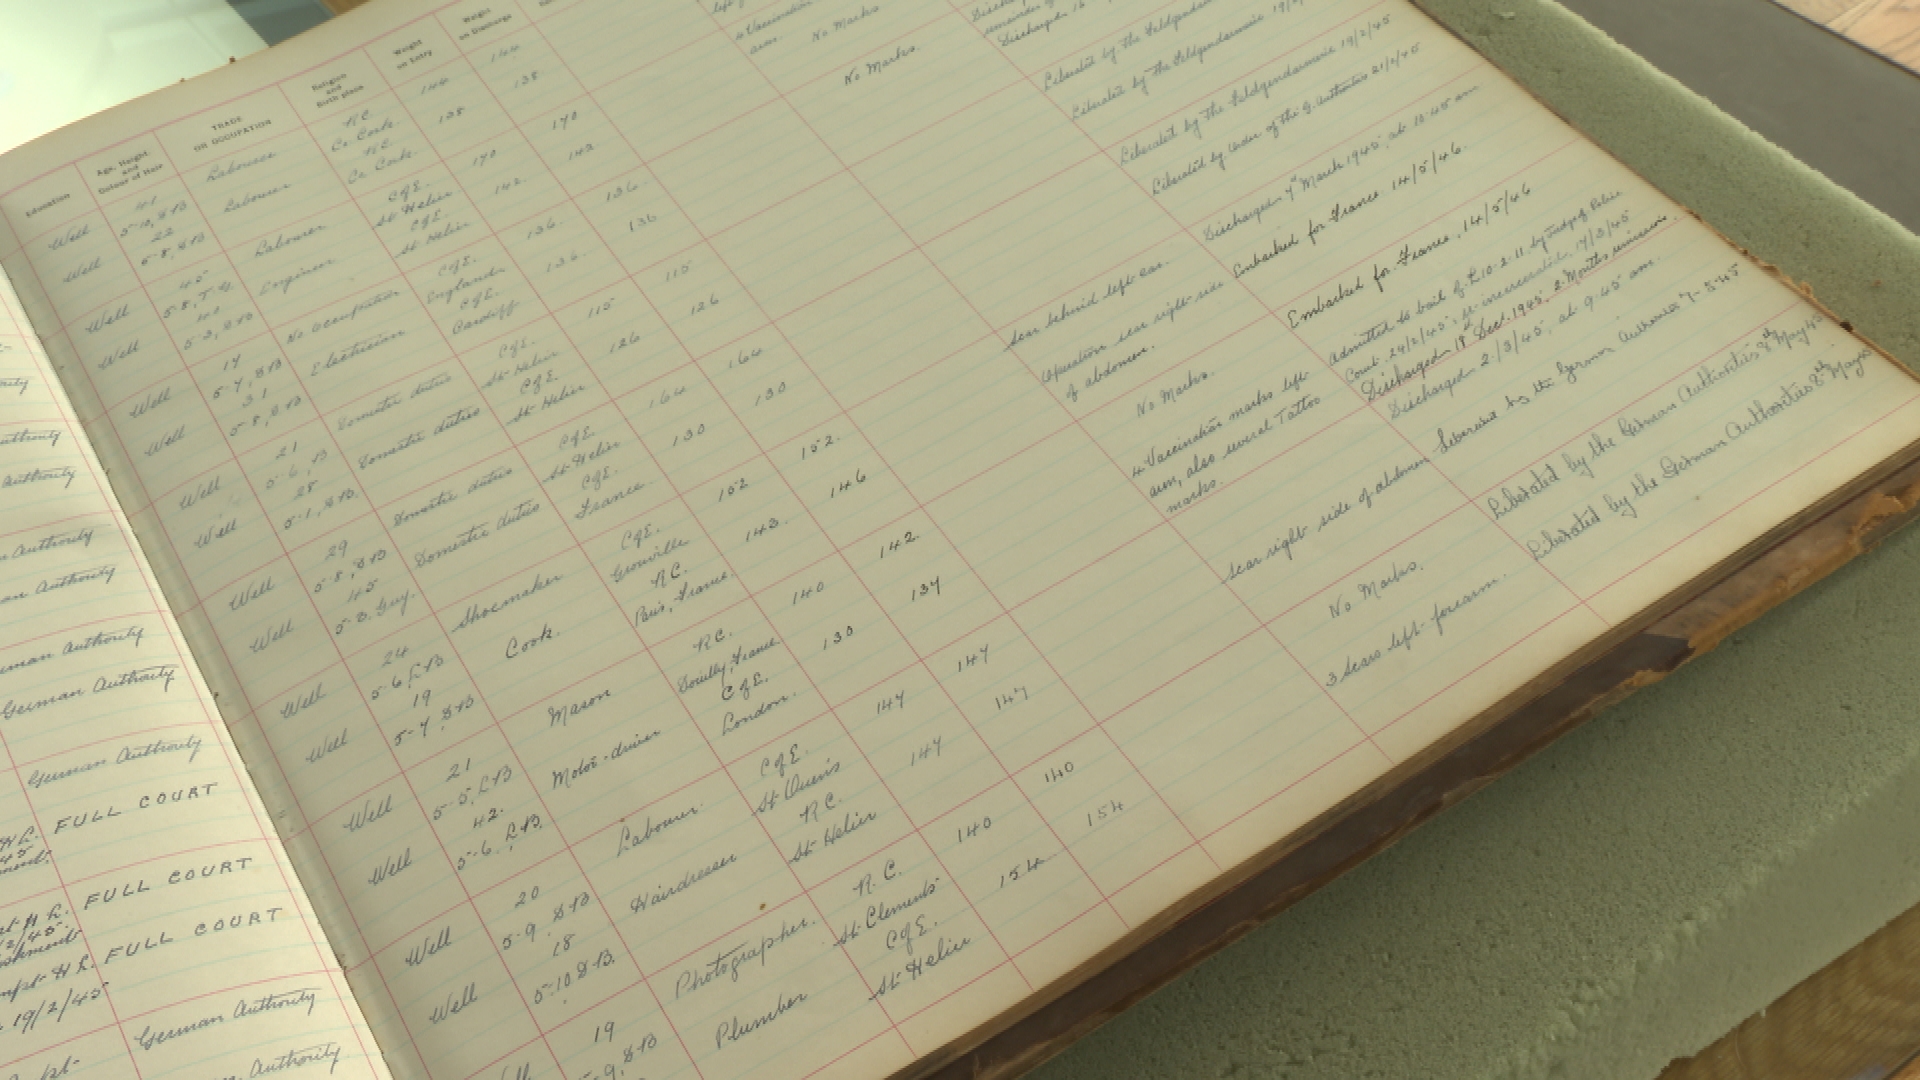 Education
Age, Height and Colour of Hair
TRADE OR OCCUPATION
Religion and Birth place
Weight on Entry
Weight on Discharge
Well
41
5-10, D.B
Labourer
R.C.
Co. Cork.
144
144
Well
22
5-8, D.B
Labourer
R.C.
Co. Cork.
138
138
Well
45
Labourer
C of E.
St Helier
170
170
Well
5-3, D.B
Engineer
C of E.
St Helier
142.
142
Well
17
5-7, D.B
No Occupation
C of E.
England
136.
136.
Well
31
5-8, D.B
Electrician
C of E.
Cardiff
136.
136
Well
21
5-6, B
Domestic duties
C of E.
St Helier
115
115
Well
28
5-1, D.B.
Domestic duties
C of E.
St Helier
126
126
Well
29
5-8, D.B
Domestic duties
C of E.
St Helier
164
164
Well
45
5-3. Grey.
Domestic duties
C of E.
France.
130
130
Well
24
5-6, L.B
Shoemaker
C of E.
Grouville
152
152.
Well
19
5-7, D.B
Cook.
R.C.
Paris, France.
143.
146
Well
21
5-5, L.B
Mason
R.C.
France
140
142.
Well
42.
5-6, L.B.
Motor-driver
C of E.
London.
130
134
Well
20
5-9. D.B
Labourer.
C of E.
St Ouen's
147
147
Well
18
5-10 D.B.
Hairdresser
R.C.
St Helier
147
147
Well
19
5-9, D.B
Photographer.
R.C.
St Clements
140
140
Plumber
C of E.
St Helier
154
154
4 Vaccination
arm.
No Marks
No Marks.
Scar behind left ear.
Operation scar right side
of abdomen.
No Marks.
4 Vaccination marks left
arm, also several Tattoo
marks.
Scar right side of abdomen
No Marks.
3 Scars left forearm.
Liberated by the Feldgendarmerie
Liberated by the Feldgendarmerie
Liberated by the Feldgendarmerie 19/2/45
Liberated by Order of the G. Authorities 21/2/45
Discharged 7th March 1945, at 10.45 am
Embarked for France. 14/5/46.
Embarked for France. 14/5/46
Admitted to bail of £10-2-11, by Judge of Police
Court. 24/2/45, re-incarcerated. 17/3/45
Discharged 18 Dec. 1945, 2 Months remission.
Discharged 2/3/45, at 9.45 am.
Liberated by the German Authorities 7-5-45
Liberated by the German Authorities 8th May 45
Liberated by the German Authorities 8th May 45
Authority
Authority
Authority
Authority
German Authority
German Authority
German Authority
FULL COURT
FULL COURT
FULL COURT
19/2/45
German Authority
Authority